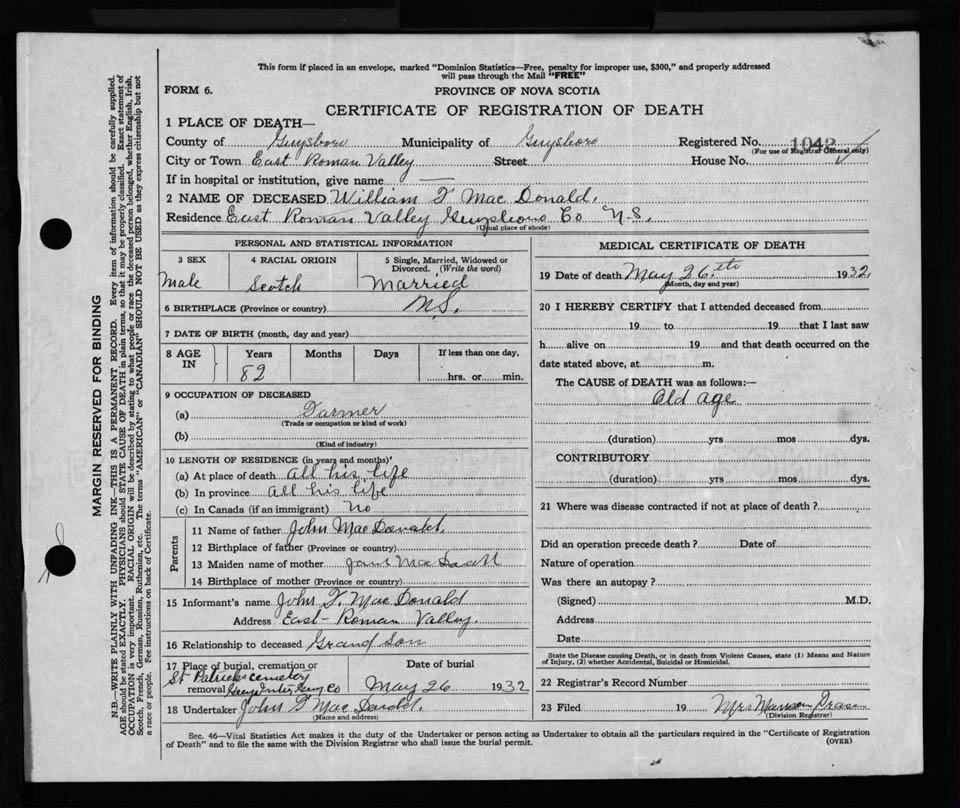 This form if placed in an envelope, marked "Dominion Statistics—Free, penalty for improper use, $300," and properly addressed
will pass through the Mail "FREE"
FORM 6.
PROVINCE OF NOVA SCOTIA
CERTIFICATE OF REGISTRATION OF DEATH
1 PLACE OF DEATH—
County of Guysboro Municipality of Guysboro Registered No. 1042
(For use of Registrar General only)
City or Town East Roman Valley Street House No.
If in hospital or institution, give name —
2 NAME OF DECEASED William F Mac Donald.
Residence East Roman Valley Guysboro Co N.S.
(Usual place of abode)
PERSONAL AND STATISTICAL INFORMATION
3 SEX
Male
4 RACIAL ORIGIN
Scotch
5 Single, Married, Widowed or
Divorced. (Write the word)
Married
6 BIRTHPLACE (Province or country) N.S.
7 DATE OF BIRTH (month, day and year)
8 AGE
IN
Years
82
Months
Days
If less than one day,
hrs. or min.
9 OCCUPATION OF DECEASED
(a) Farmer
(Trade or occupation or kind of work)
(b)
(Kind of industry)
10 LENGTH OF RESIDENCE (in years and months)
(a) At place of death all his life
(b) In province all his life
(c) In Canada (if an immigrant) No
Parents
11 Name of father John MacDonald.
12 Birthplace of father (Province or country)
13 Maiden name of mother Jane
14 Birthplace of mother (Province or country)
15 Informant's name John F. MacDonald
Address East-Roman Valley.
16 Relationship to deceased Grand son
17 Place of burial, cremation or
removal St Patricks cemetery
Date of burial
May 26 1932
18 Undertaker John F
(Name and address)
MEDICAL CERTIFICATE OF DEATH
19 Date of death May 26th 1932
(Month, day and year)
20 I HEREBY CERTIFY that I attended deceased from
19 to 19 that I last saw
h alive on 19 and that death occurred on the
date stated above, at m.
The CAUSE of DEATH was as follows:—
Old age
(duration) yrs mos dys.
CONTRIBUTORY
(duration) yrs mos dys.
21 Where was disease contracted if not at place of death?
Did an operation precede death? Date of
Nature of operation
Was there an autopsy?
(Signed) M.D.
Address
Date
State the Disease causing Death, or in death from Violent Causes, state (1) Means and Nature
of Injury, (2) whether Accidental, Suicidal or Homicidal.
22 Registrar's Record Number
23 Filed 19 Mrs
(Division Registrar)
Sec. 46—Vital Statistics Act makes it the duty of the Undertaker or person acting as Undertaker to obtain all the particulars required in the "Certificate of Registration
of Death" and to file the same with the Division Registrar who shall issue the burial permit.
(OVER)
MARGIN RESERVED FOR BINDING
N.B.—WRITE PLAINLY WITH UNFADING INK—THIS IS A PERMANENT RECORD. Every item of information should be carefully supplied.
AGE should be stated EXACTLY. PHYSICIANS should STATE CAUSE OF DEATH in plain terms, so that it may be properly classified. Exact statement of
OCCUPATION is very important. RACIAL ORIGIN will be described by stating to what people or race the deceased person belonged, whether English, Irish,
Scotch, French, German, Russian, Ruthenian, etc. The terms "AMERICAN" or "CANADIAN" SHOULD NOT BE USED as they express citizenship but not
a race or people. See instructions on back of Certificate.